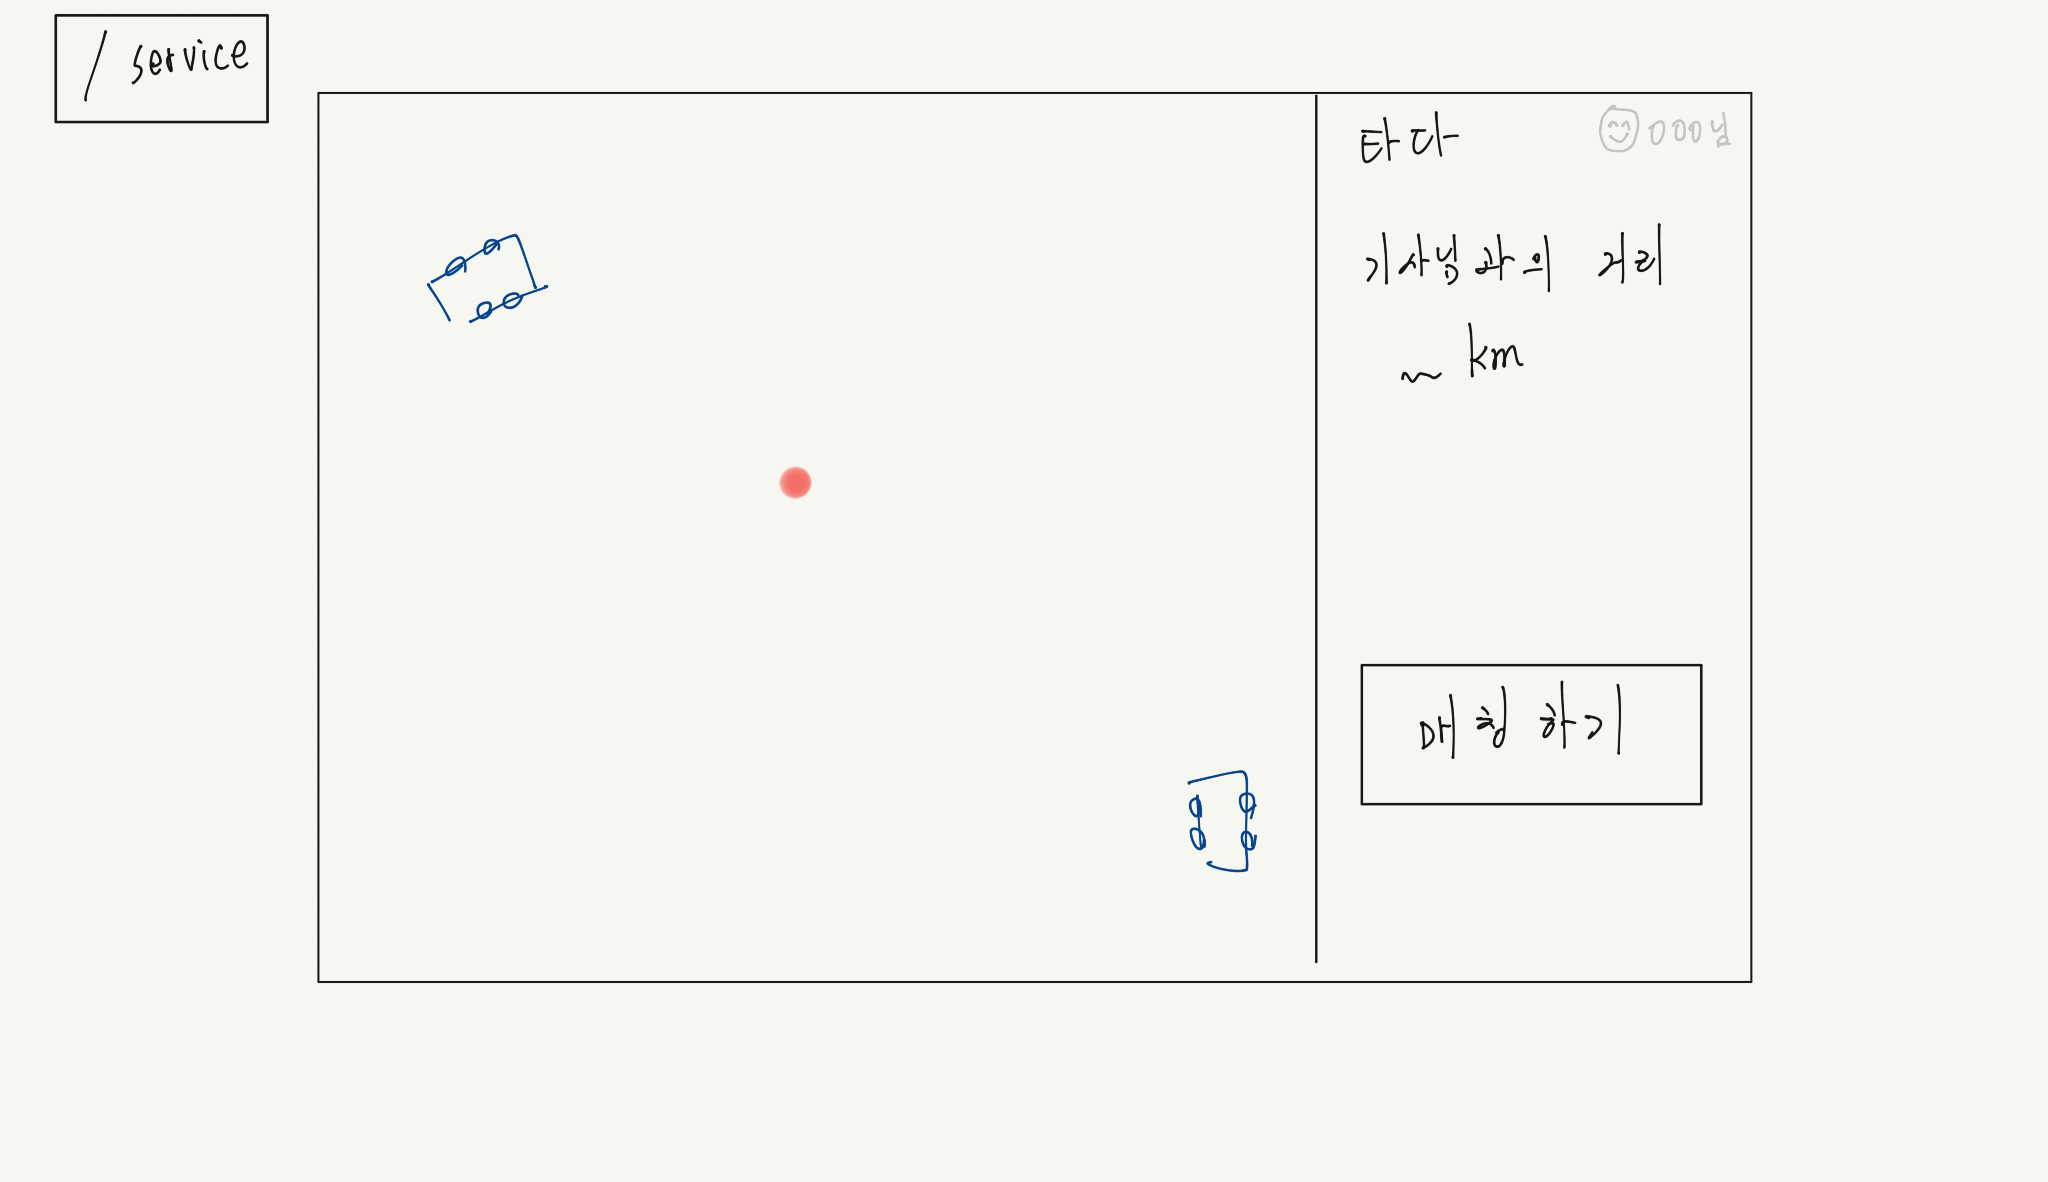 / service
타다
000님
기사님과의 거리
~ km
매칭하기